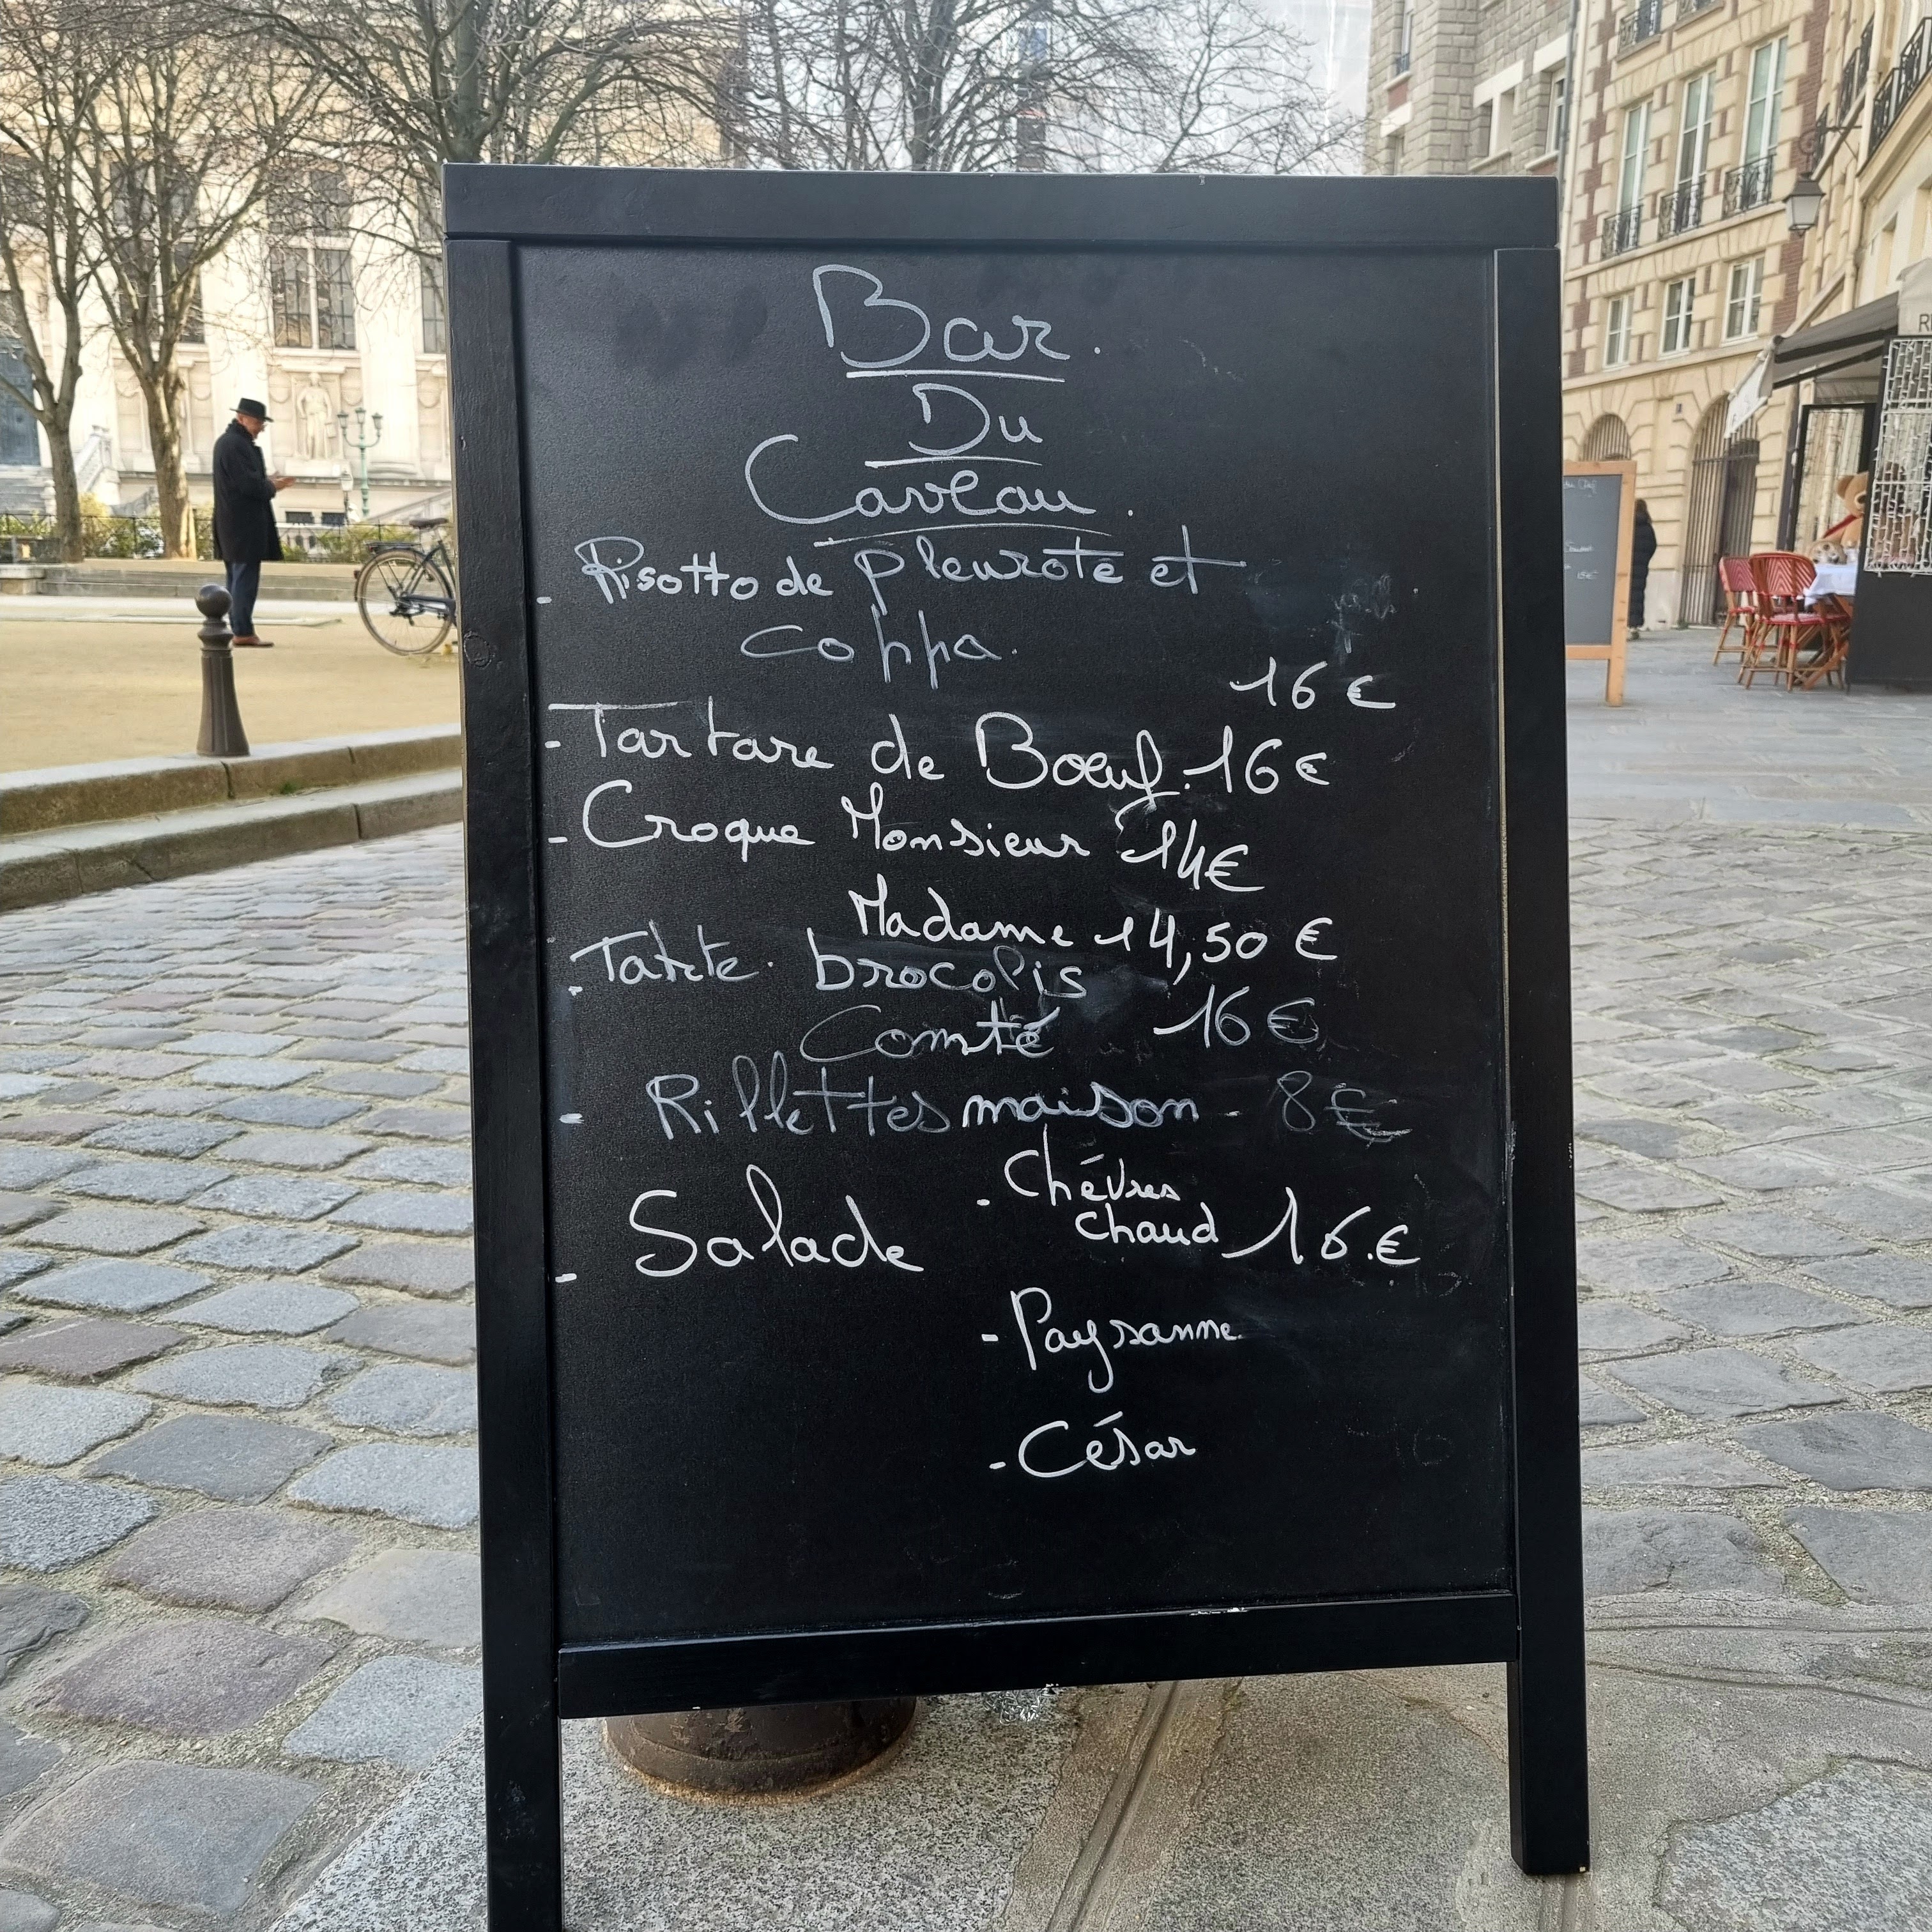 Bar.
Du
Caveau.
- Risotto de pleurote et
coppa.
16 €
- Tartare de Boeuf. 16 €
- Croque Monsieur 14 €
Madame 14,50 €
- Tarte. brocolis
Comté 16 €
- Rillettes maison - 8 €
- Salade - Chévres
chaud 16.€
- Paysanne.
- César